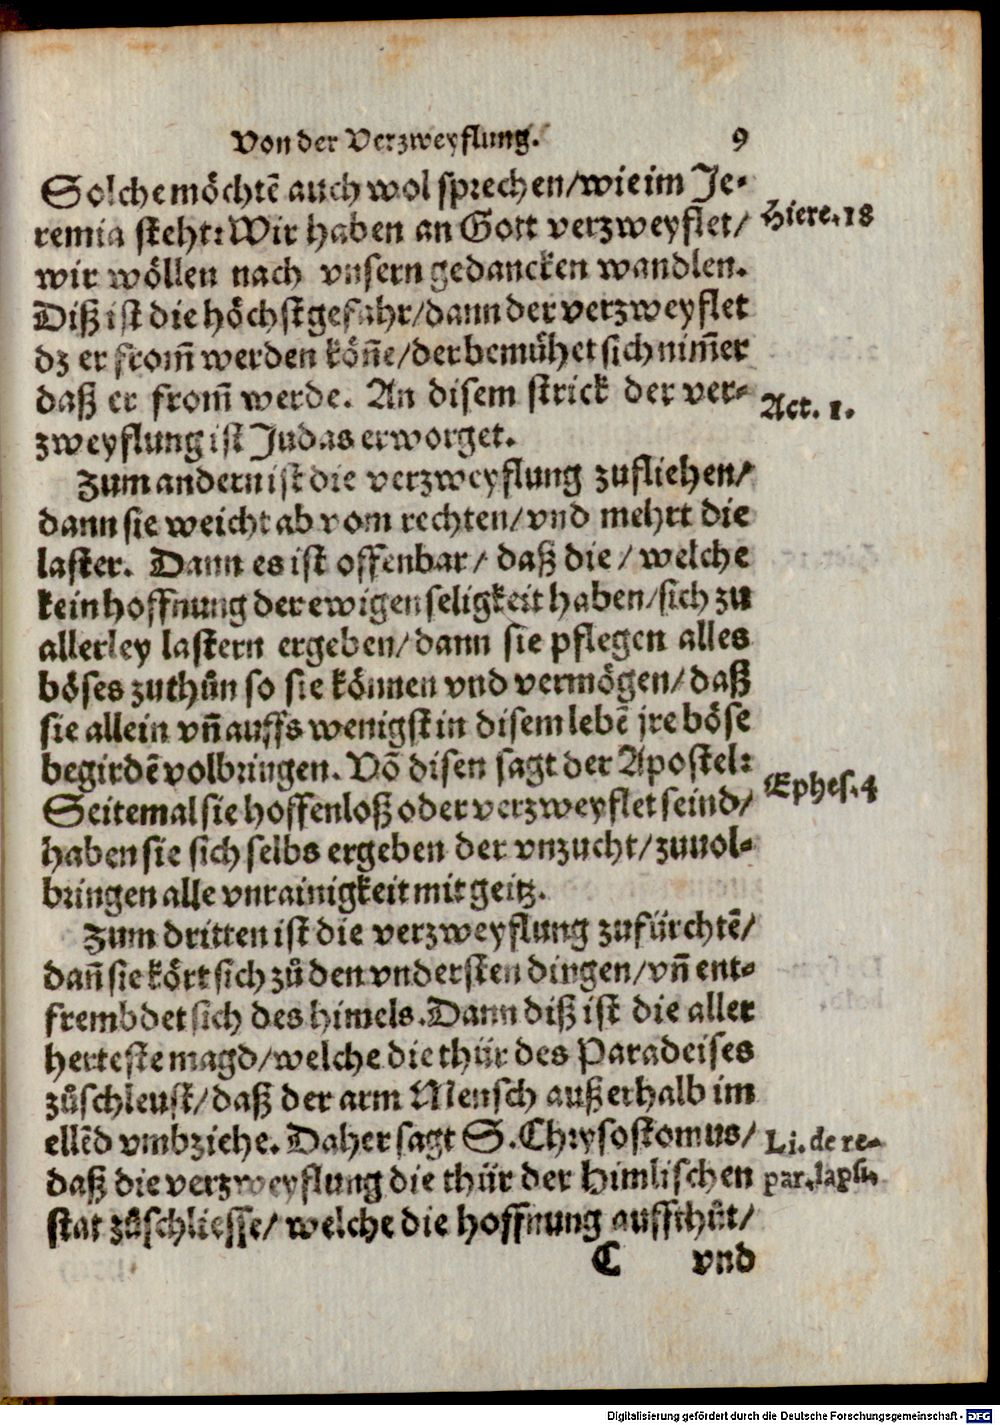 Von der Verzweyflung. 9
Solche möchtē auch wol sprechen/ wie im Je-
remia steht: Wir haben an Gott verzweyflet/ Hiere. 18
wir wöllen nach vnsern gedancken wandlen.
Diß ist die höchst gefahr/ dann der verzweyflet
dz er from̄ werden kön̄e/ der bemühet sich nim̄er
daß er from̄ werde. An disem strick der ver- Act. 1.
zweyflung ist Judas erworget.
Zum andern ist die verzweyflung zufliehen/
dann sie weicht ab vom rechten/ vnd mehrt die
laster. Dann es ist offenbar/ daß die/ welche
kein hoffnung der ewigen seligkeit haben/ sich zu
allerley lastern ergeben/ dann sie pflegen alles
böses zuthůn so sie können vnd vermögen/ daß
sie allein vn̄ auffs wenigst in disem lebē jre böse
begirdē volbringen. Vō disen sagt der Apostel:
Seitemal sie hoffenloß oder verzweyflet seind/ Ephes. 4
haben sie sich selbs ergeben der vnzucht/ zuuol-
bringen alle vnrainigkeit mit geitz.
Zum dritten ist die verzweyflung zufürchtē/
dan̄ sie kört sich zů den vndersten dingen/ vn̄ ent-
frembdet sich des himels. Dann diß ist die aller
herteste magd/ welche die thür des Paradeises
zůschleust/ daß der arm Mensch ausserhalb im
ellēd vmbziehe. Daher sagt S. Chrysostomus/ Li. de re-
daß die verzweyflung die thür der Himlischen par. lapsi.
stat zůschliesse/ welche die hoffnung auffthůt/
C vnd
Digitalisierung gefördert durch die Deutsche Forschungsgemeinschaft - DFG